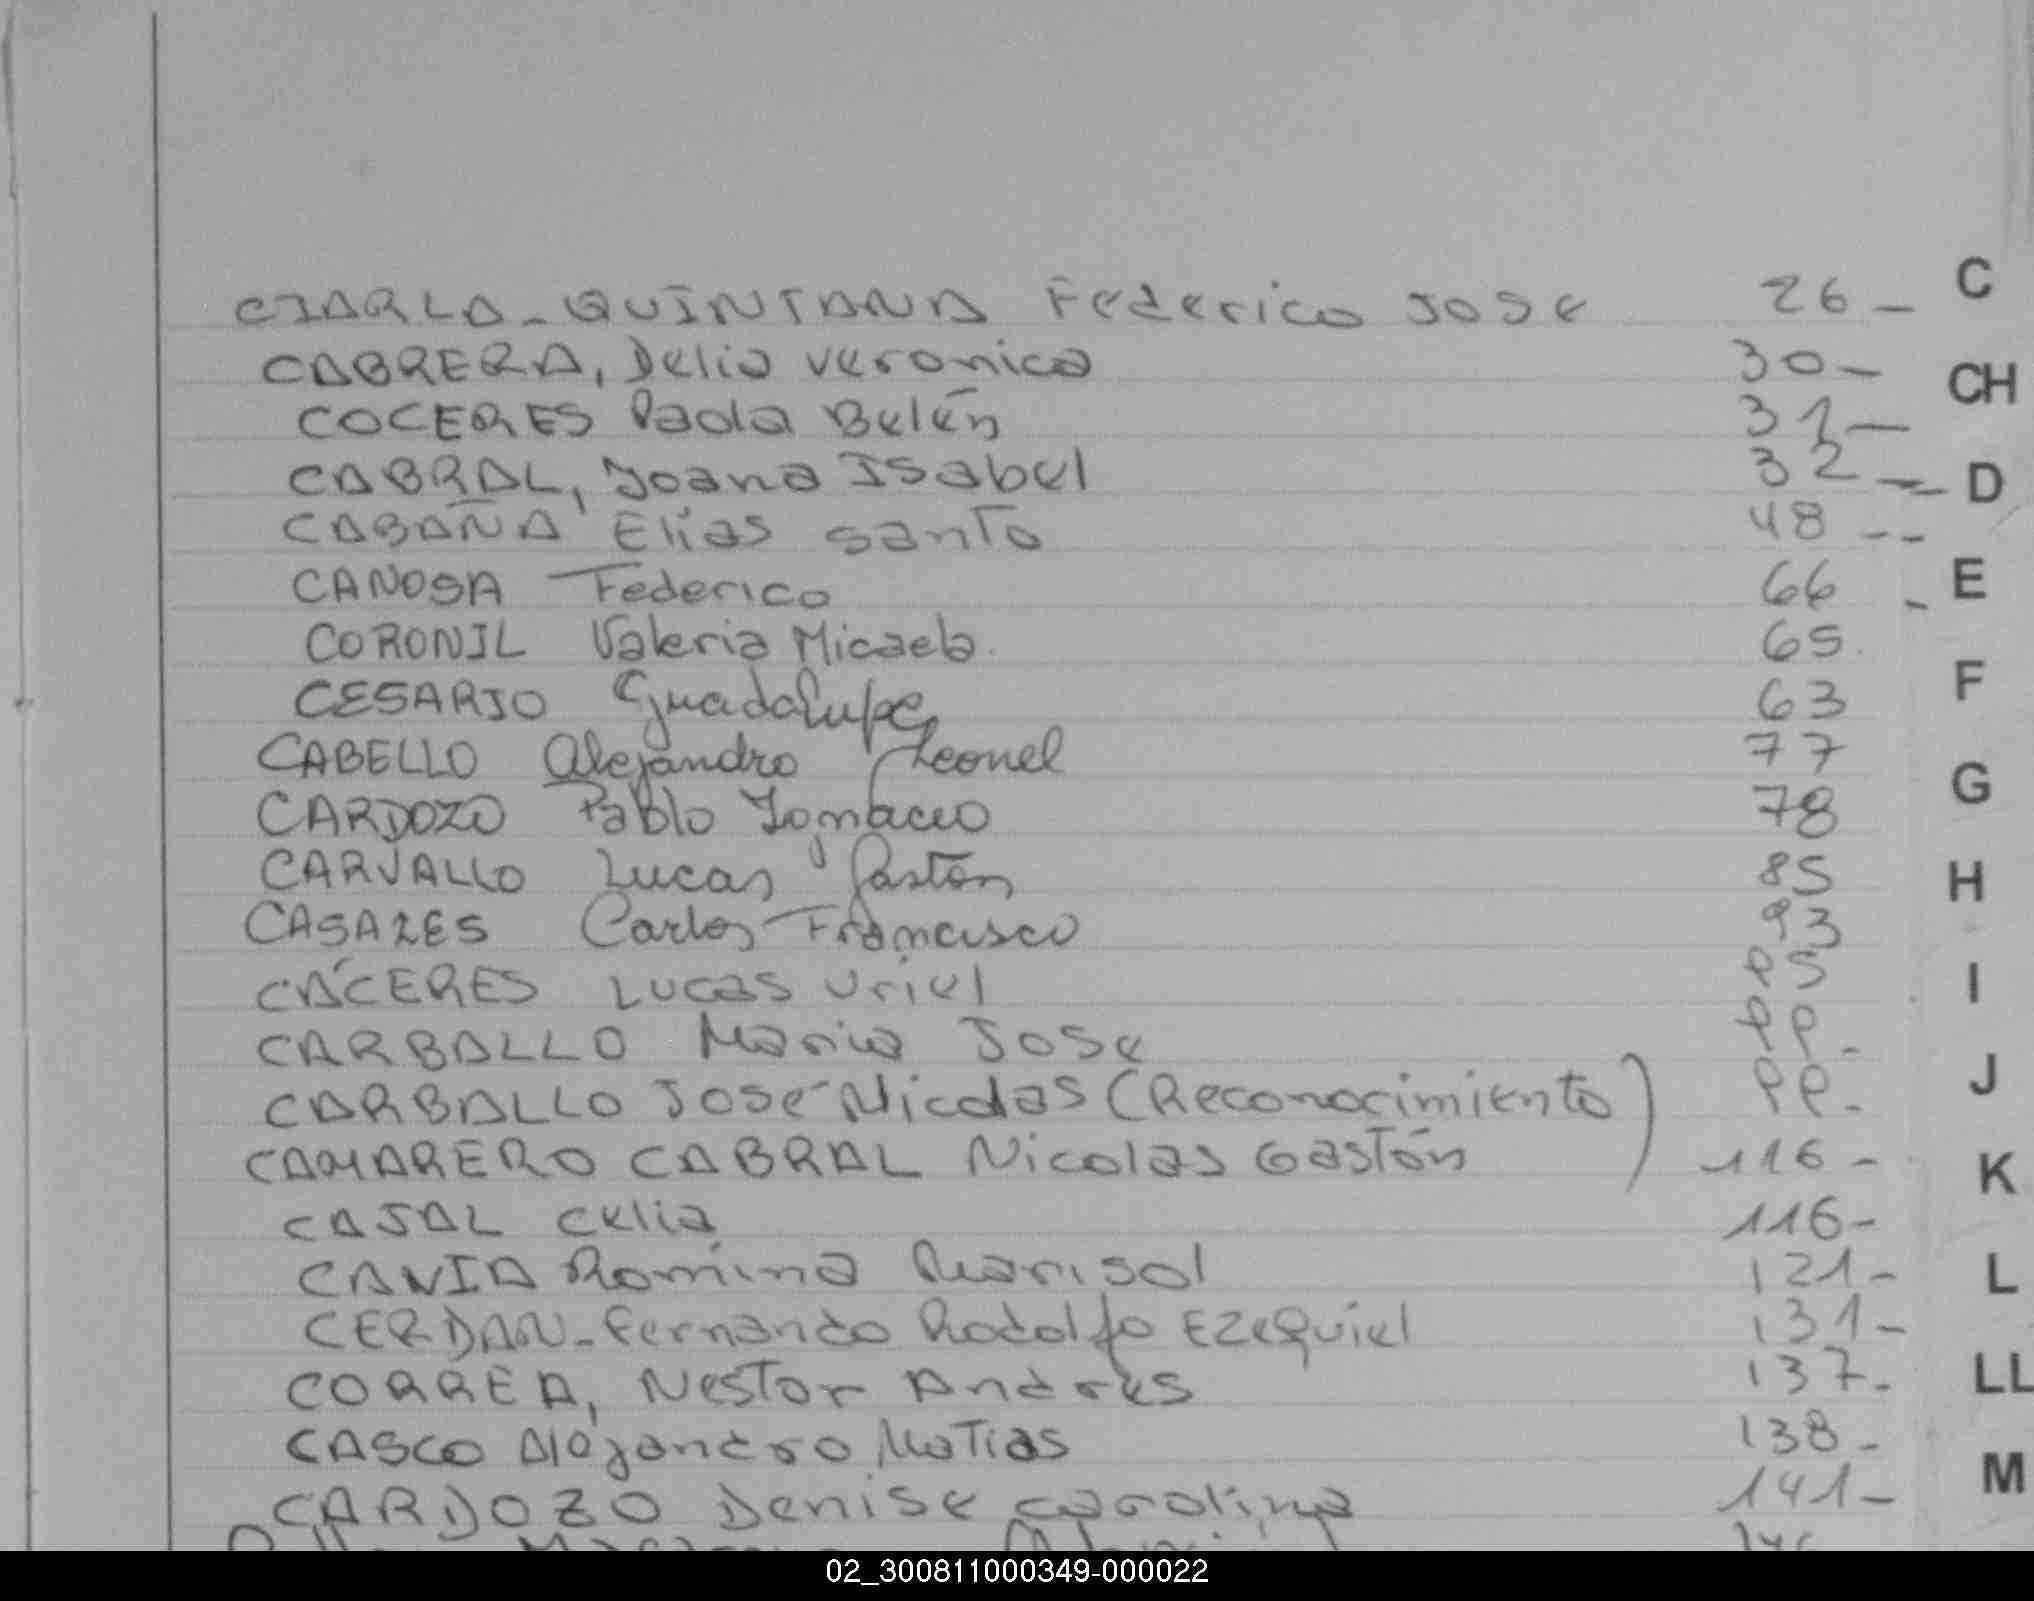 CIARLA - QUINTANA Federico Jose 26 - C
CABRERA, Delia Veronica 30 -
CH
COCERES Paola Belén 31 -
CABRAL, Joana Isabel 32 - D
CABAÑA Elías Santo 48 --
CANOSA Federico 66 - E
CORONIL Valeria Micaela. 65.
CESARIO Guadalupe 63 F
CABELLO Alejandro Leonel 77
CARDOZO Pablo Ignacio 78 G
CARVALLO Lucas Gastón 85 H
CASARES Carlos Francisco 93
CÁCERES Lucas Uriel 95 I
CARBALLO Maria Jose 99 -
CARBALLO José Nicolas (Reconocimiento) 99 - J
CAMARERO CABRAL Nicolas Gastón 116 - K
CASAL Celia 116 -
CANIA Romina Marisol 121 - L
CERDAN - Fernando Rodolfo Ezequiel 131 -
CORREA, Nestor Andrés 137 - LL
CASCO Alejandro Matias 138 -
CARDOZO Denise Carolina 141 - M
02_300811000349-000022